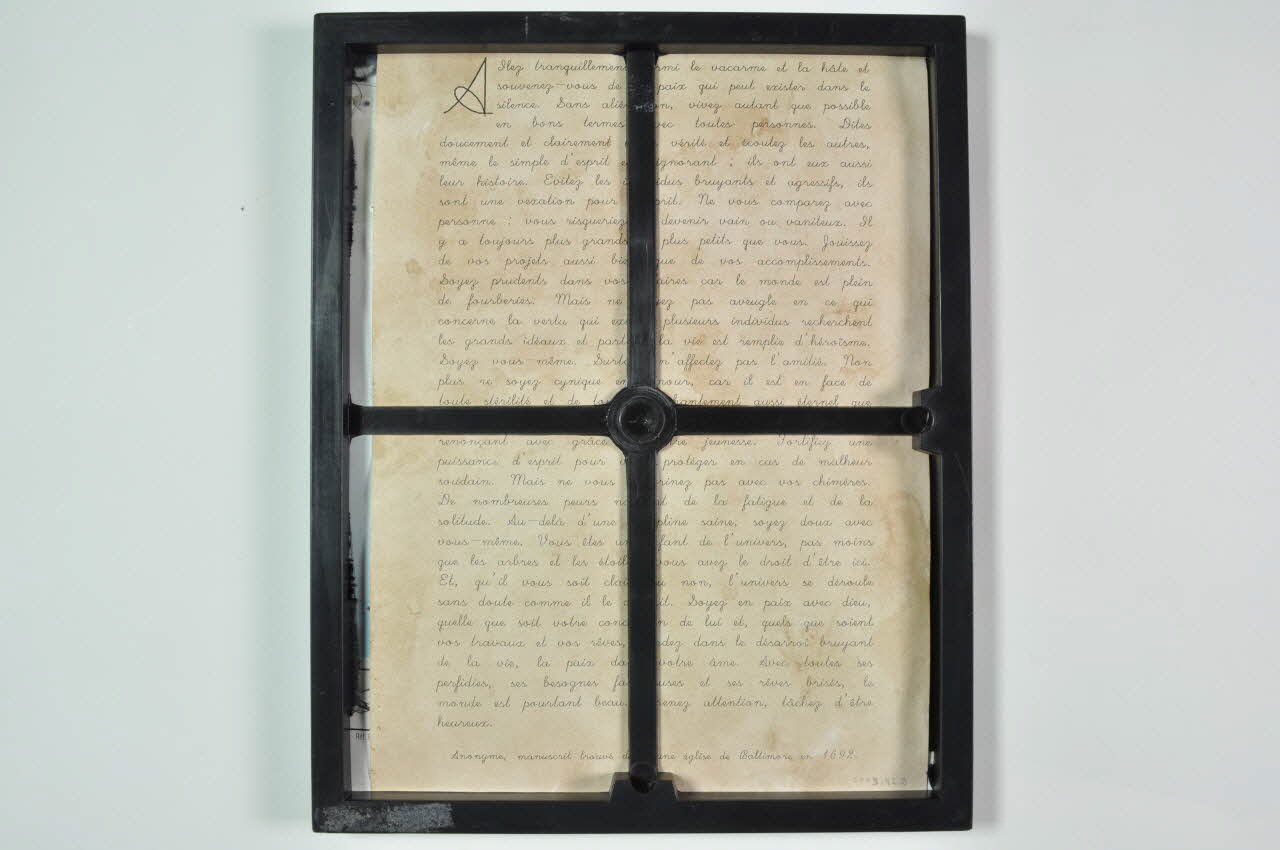 Allez tranquillement parmi le vacarme et la hâte et
souvenez-vous de la paix qui peut exister dans le
silence. Sans aliénation, vivez autant que possible
en bons termes avec toutes personnes. Dites
doucement et clairement votre vérité et écoutez les autres,
même le simple d'esprit et l'ignorant ; ils ont eux aussi
leur histoire. Evitez les individus bruyants et agressifs, ils
sont une vexation pour l'esprit. Ne vous comparez avec
personne : vous risqueriez de devenir vain ou vaniteux. Il
y a toujours plus grands et plus petits que vous. Jouissez
de vos projets aussi bien que de vos accomplissements.
Soyez prudents dans vos affaires car le monde est plein
de fourberies. Mais ne soyez pas aveugle en ce qui
concerne la vertu qui existe plusieurs individus recherchent
les grands idéaux et partout la vie est remplie d'héroïsme.
Soyez vous-même. Surtout n'affectez pas l'amitié. Non
plus ne soyez cynique en amour, car il est en face de
toute stérilité et de tout désenchantement aussi éternel que
renonçant avec grâce à votre jeunesse. Fortifiez une
puissance d'esprit pour vous protéger en cas de malheur
soudain. Mais ne vous chagrinez pas avec vos chimères.
De nombreuses peurs naissent de la fatigue et de la
solitude. Au-delà d'une discipline saine, soyez doux avec
vous-même. Vous êtes un enfant de l'univers, pas moins
que les arbres et les étoiles vous avez le droit d'être ici.
Et, qu'il vous soit clair ou non, l'univers se déroule
sans doute comme il le devrait. Soyez en paix avec dieu,
quelle que soit votre conception de lui et, quels que soient
vos travaux et vos rêves, gardez dans le désarroi bruyant
de la vie, la paix dans votre âme. Avec toutes ses
perfidies, ses besognes fastidieuses et ses rêves brisés, le
monde est pourtant beau. Prenez attention, tâchez d'être
heureux.
Anonyme, manuscrit trouvé dans une église de Baltimore en 1692.